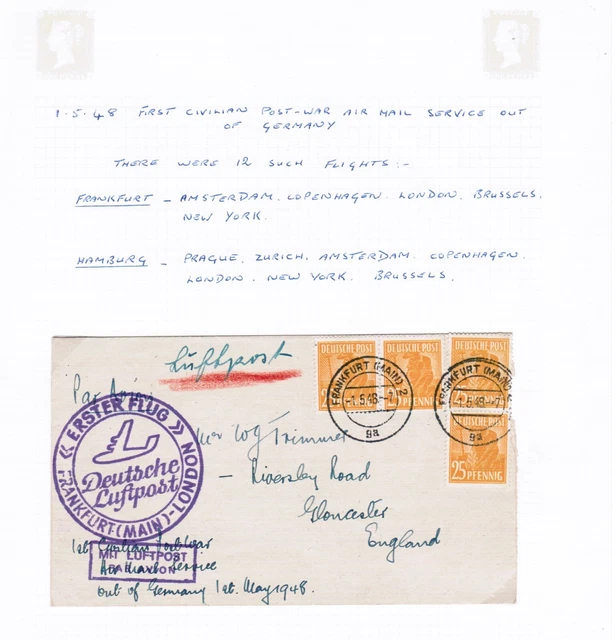 1.5.48 FIRST CIVILIAN POST-WAR AIR MAIL SERVICE OUT
OF GERMANY
THERE WERE 12 SUCH FLIGHTS:-
FRANKFURT - AMSTERDAM. COPENHAGEN. LONDON. BRUSSELS.
NEW YORK.
HAMBURG - PRAGUE. ZURICH. AMSTERDAM. COPENHAGEN.
LONDON. NEW YORK. BRUSSELS.
Luftpost
Par Avion
DEUTSCHE POST
DEUTSCHE POST
DEUTSCHE POST
25 PFENNIG
25 PFENNIG
FRANKFURT (MAIN) 2
-1.5.48.-
ga
FRANKFURT (MAIN)
-1.5.48.-
ga
DEUTSCHE POST
25 PFENNIG
« ERSTER FLUG »
Deutsche
Luftpost
FRANKFURT (MAIN)-LONDON
W G Trimmer
- Riversley Road
Gloucester
England
MIT LUFTPOST
PAR AVION
1st Civilian Post War
Air Mail Service
out of Germany 1st. May 1948.